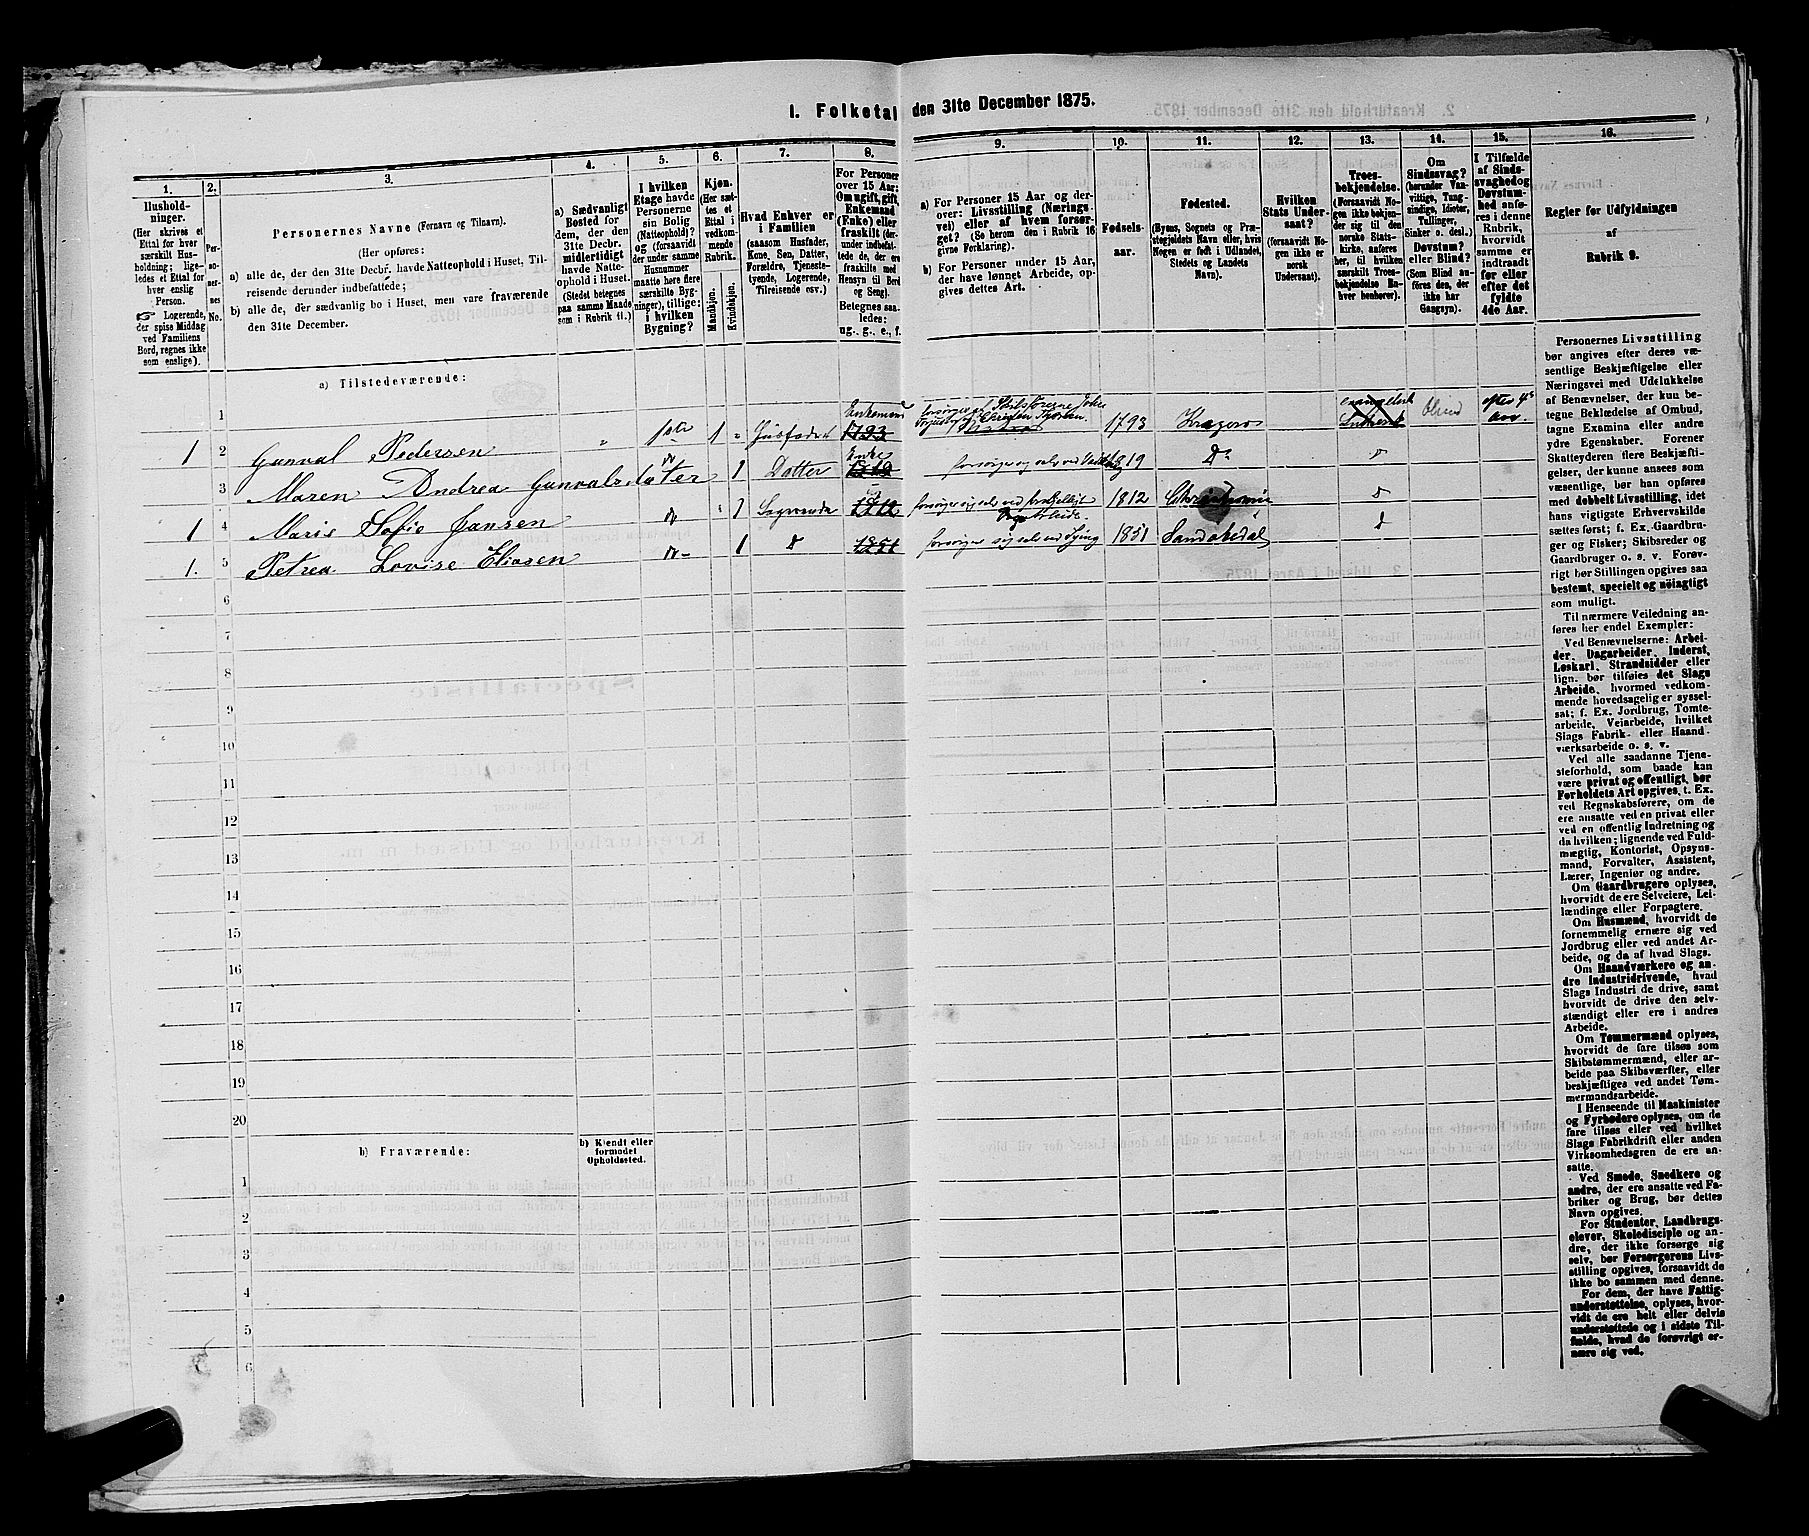 1. Folketal den 31te December 1875.
1. 2. 3. 4. 5. 6. 7. 8. 9. 10. 11. 12. 13. 14. 15. 16.
Husholdninger.
(Her skrives et
Ettal for hver
særskilt Husholdning;
ligeledes et Ettal
for hver
enslig
Person.
Logerende,
der spise Middag
ved Familiens
Bord, regnes ikke
som enslige).
Personernes No.
Personernes Navne (Fornavn og Tilnavn).
(Her opføres:
a) alle de, der den 31te Decbr. havde Natteophold i Huset, Tilreisende
derunder indbefattede;
b) alle de, der sædvanlig bo i Huset, men vare fraværende
den 31te December.
a) Sædvanligt
Bosted for
dem, der den
31te Decbr.
midlertidigt
havde Natteophold
i Huset.
(Stedet betegnes
paa samme Maade
som i Rubrik 11.)
I hvilken
Etage havde
Personerne
sin Bolig
(Natteophold)?
og (forsaavidt
der under samme
Husnummer
maatte høre flere
særskilte Bygninger),
tillige:
i hvilken
Bygning?
Kjøn.
(Her sættes
et
Ettal i
vedkommende
Rubrik.
Mandkjøn.
Kvindekjøn.
Hvad Enhver er
i Familien
(saasom Husfader,
Kone, Søn, Datter,
Forældre, Tjenestetyende,
Logerende,
Tilreisende osv.)
For Personer
over 15 Aar:
Om ugift, gift,
Enkemand
(Enke) eller
fraskilt (derunder
indbefattede
de, der ere
fraskilte med
Hensyn til Bord
og Seng).
Betegnes saaledes:
ug., g., e., f.
a) For Personer 15 Aar og derover:
Livsstilling (Næringsvei)
eller af hvem forsørget?
(Se herom den i Rubrik 16
givne Forklaring).
b) For Personer under 15 Aar,
der have lønnet Arbeide, opgives
dettes Art.
Fødselsaar.
Fødested.
(Byens, Sognets og Præstegjeldets
Navn eller, hvis
Nogen er født i Udlandet,
Stedets og Landets
Navn).
Hvilken
Stats Undersaat?
(forsaavidt Nogen
ikke er
norsk
Undersaat).
Troesbekjendelse.
(Forsaavidt Nogen
ikke bekjender
sig til den
norske Statskirke,
anføres
her, til hvilken
særskilt Troesbekjendelse
Enhver
henhører).
Om
Sindssvag?
(herunder Vanvittige,
Tungsindige,
Idioter,
Tullinger,
Sinker o. desl.)
Døvstum?
eller Blind?
(Som Blind anføres
den, der
ikke har
Gangsyn).
I Tilfælde
af Sindssvaghed
og
Døvstumhed
anføres
i denne
Rubrik,
hvorvidt
samme er
indtraadt
før eller
efter det
fyldte
4de Aar.
Regler for Udfyldningen
af
Rubrik 9.
a) Tilstedeværende:
1
1 2 Gunval Pedersen " 1ste 1 " Husfader Enkemand 1793 1793 Kragerø evangelisk Luthersk Blind efter 4de Aar.
3 Maren Andrea Gunvalsdatter 1 Datter Enke 1819 1819
1 4 Marie Sofie Jansen " 1 Logerende 1812 1812 Christiania
1. 5 Petrea Lovise Eliasen 1 1851 forsørger sig selv ved Sying 1851 Sandøkedal
6
7
8
9
10
11
12
13
14
15
16
17
18
19
20
b) Fraværende:
b) Kjendt eller
formodet
Opholdssted.
1
2
3
4
5
6
Personernes Livsstilling
bør angives efter deres væsentlige
Beskjæftigelse eller
Næringsvei med Udelukkelse
af Benævnelser, der kun betegne
Beklædelse af Ombud,
tagne Examina eller andre
ydre Egenskaber. Forener
Skatteyderen flere Beskjæftigelser,
der kunne ansees som
væsentlige, bør han opføres
med dobbelt Livsstilling, idet
hans vigtigste Erhvervskilde
sættes først; f. Ex. Gaardbruger
og Fisker; Skibsreder og
Gaardbruger o. s. v. Forøvrigt
bør Stillingen opgives saa
bestemt, specielt og nøiagtigt
som muligt.
Til nærmere Veiledning anføres
her endel Exempler:
Ved Benævnelserne: Arbeider,
Dagarbeider, Inderst,
Løskarl, Strandsidder eller
lign. bør tilføies det Slags
Arbeide, hvormed vedkommende
hovedsagelig er sysselsat;
f. Ex. Jordbrug, Tomtearbeide,
Veiarbeide, hvilket
Slags Fabrik- eller Haandværksarbeide
o. s. v.
Ved alle saadanne Tjenesteforhold,
som baade kan
være privat og offentligt, bør
Forholdets Art opgives, t. Ex.
ved Regnskabsførere, om de
ere ansatte ved en privat eller
ved en offentlig Indretning og
da hvilken; lignende ved Fuldmægtig,
Kontorist, Opsynsmand,
Forvalter, Assistent,
Lærer, Ingeniør og andre.
Om Gaardbrugere oplyses,
hvorvidt de ere Selveiere, Leilændinge
eller Forpagtere.
Om Husmænd, hvorvidt de
fornemmelig ernære sig ved
Jordbrug eller ved andet Arbeide,
og da af hvad Slags.
Om Haandværkere og andre
Industridrivende, hvad
Slags Industri de drive, samt
hvorvidt de drive den selvstændigt
eller ere i andres
Arbeide.
Om Tømmermænd oplyses,
hvorvidt de fare tilsøs som
Skibstømmermænd, eller arbeide
paa Skibsværfter, eller
beskjæftiges ved andet Tømmermandsarbeide.
I Henseende til Maskinister
og Fyrbødere oplyses, om de
fare tilsøs eller ved hvilket
Slags Fabrikdrift eller anden
Virksomhedsgren de ere ansatte.
Ved Smede, Snedkere og
andre, der ere ansatte ved Fabriker
og Brug, bør dettes
Navn opgives.
For Studenter, Landbrugselever,
Skoledisciple og andre,
der ikke forsørge sig
selv, bør Forsørgerens Livsstilling
opgives, forsaavidt de
ikke bo sammen med denne.
For dem, der have Fattigunderstøttelse,
oplyses, hvorvidt
de ere helt eller delvis
understøttede og i sidste Tilfælde,
hvad de forøvrigt ernære
sig ved.